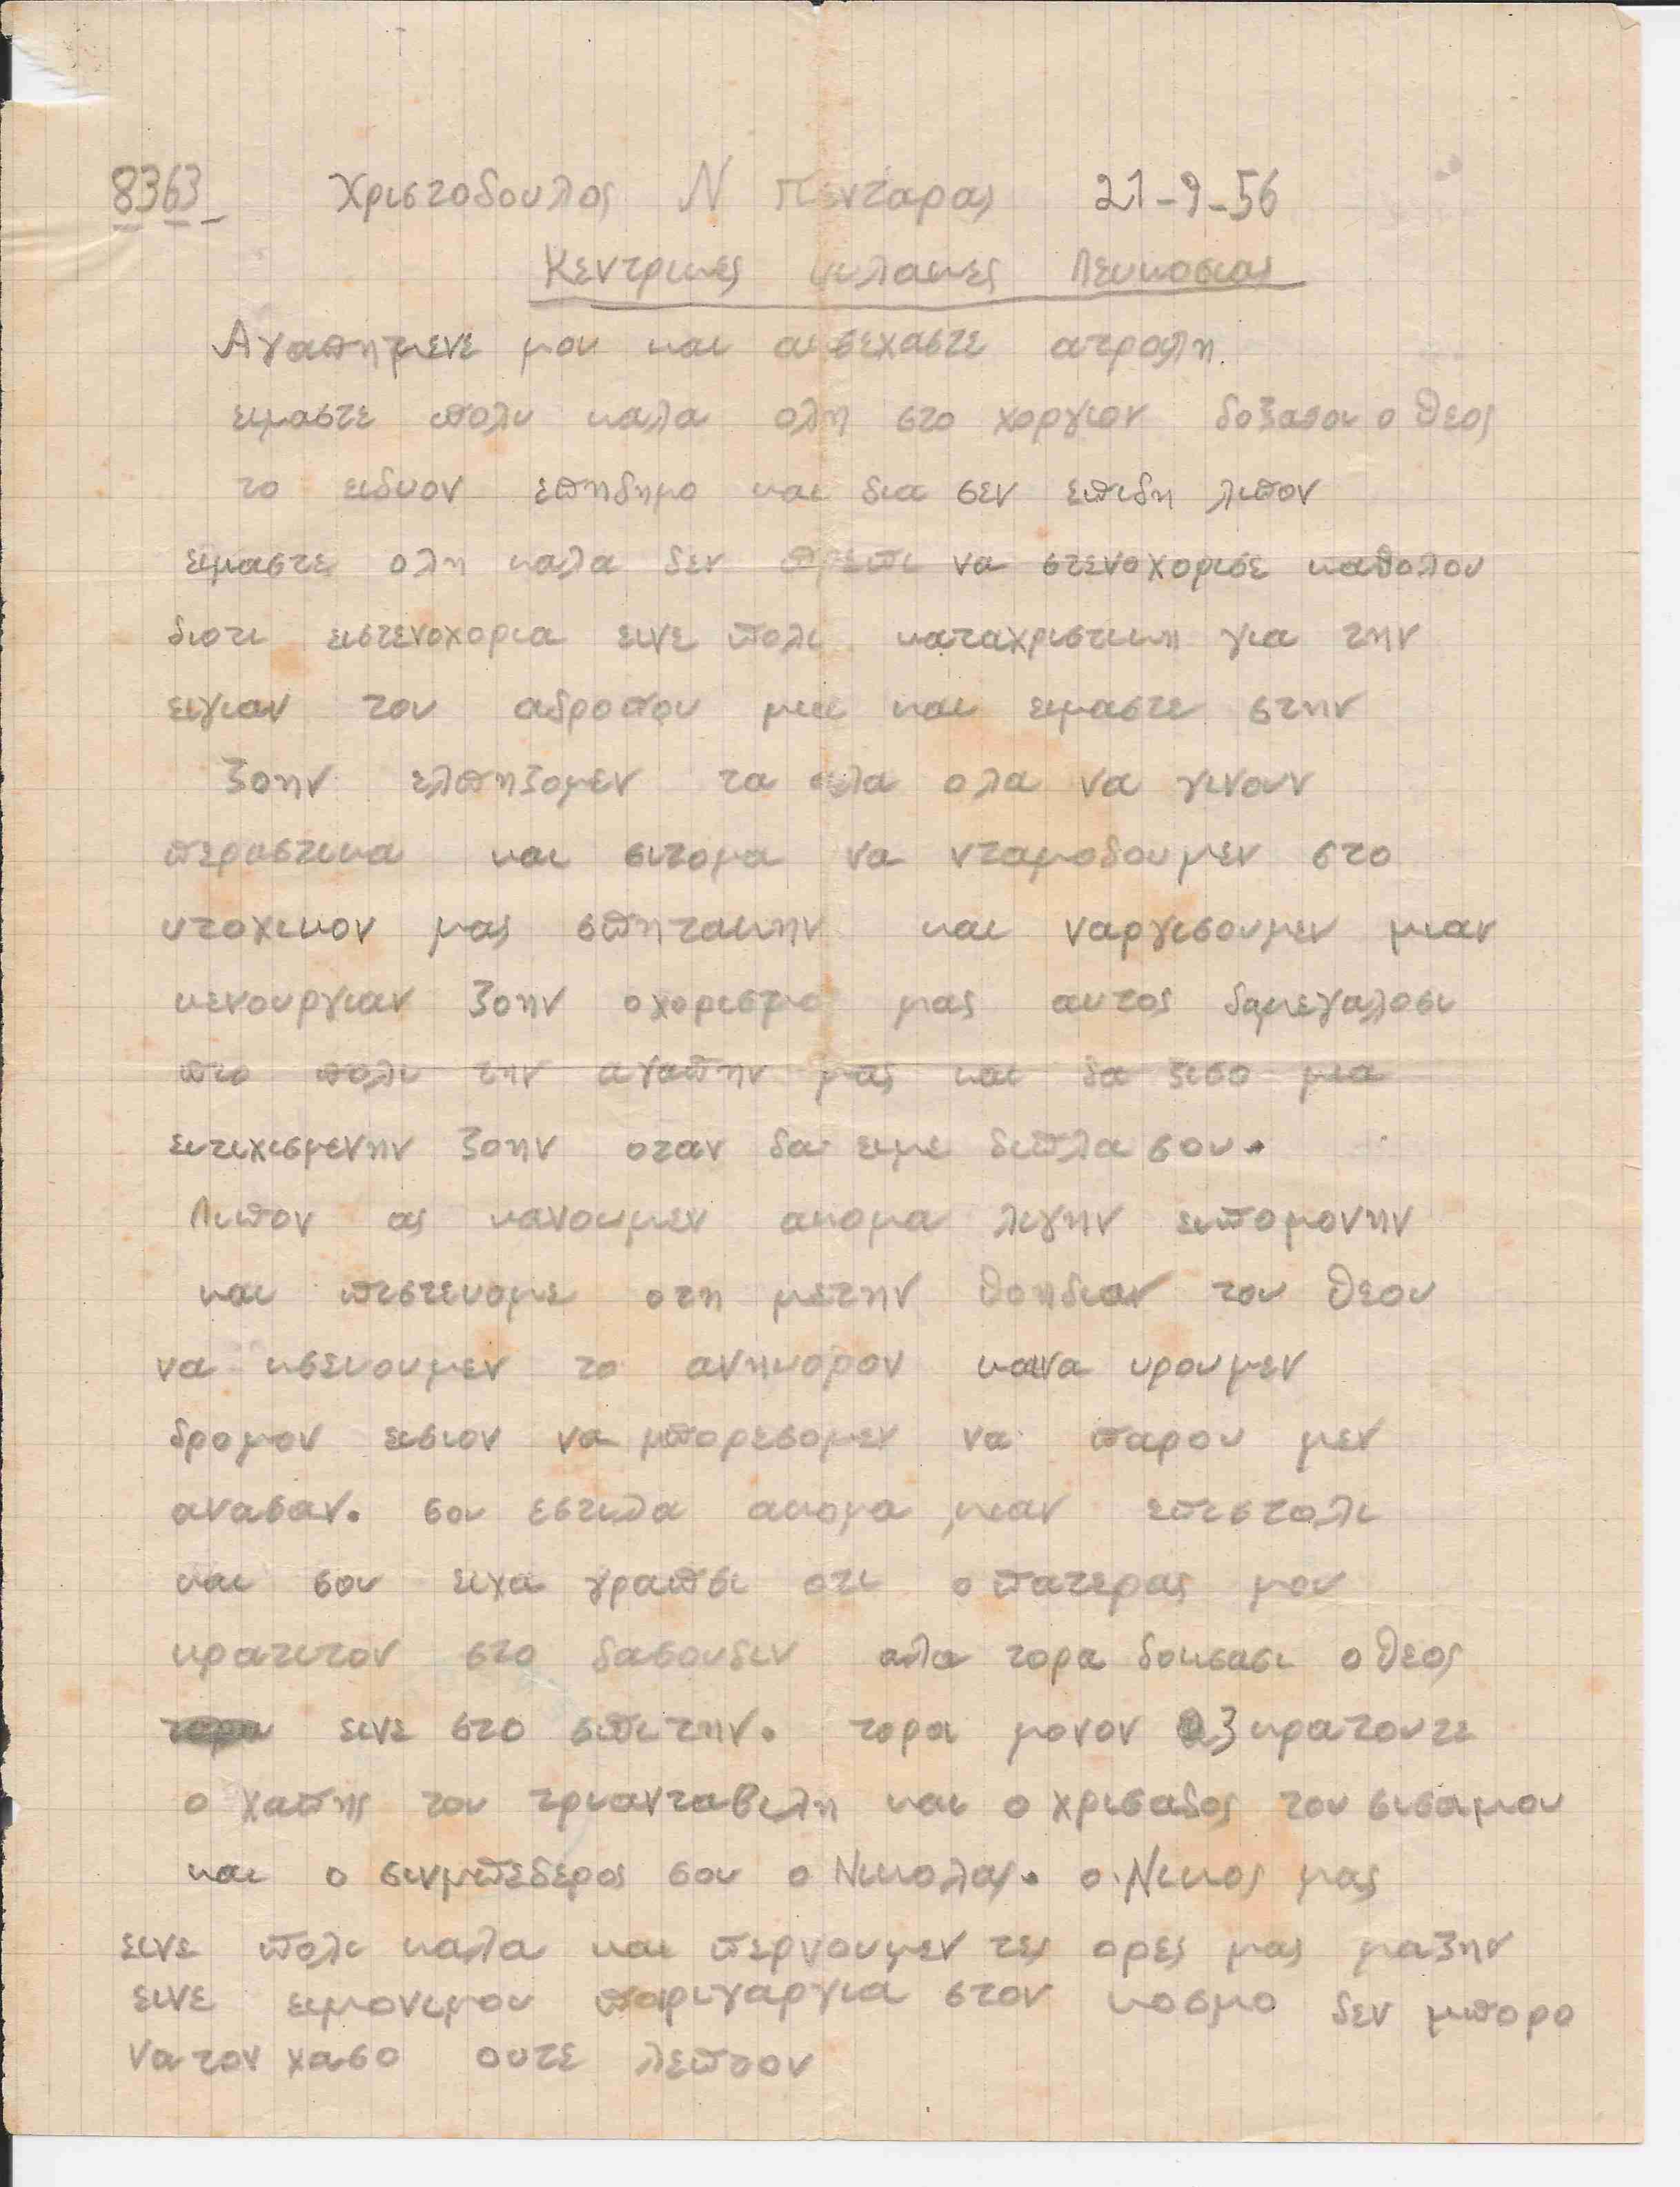 8363 Χριστοδουλος Ν Πενταρας 21-9-56
Κεντρικες φυλακες Λευκοσιας
Αγαπητμενε μου και αισεχαστε ατροπη.
ειμαστε πολυ καλα ολη στο χοργιον δοξασοι ο θεος
το ειδυον επηδημο και δια σεν επιδη λιπον
ειμαστε ολη καλα δεν πρεπι να στενοχορισε καθολου
διοτι ειστενοχορια εινε πολι καταχριστικη για την
ειγιαν του αδροπου μιε και ειμαστε στην
ζοην ελπηζομεν τα ολα να γινουν
περαστικα και σιτομα να νταμοδουμεν στο
υτοχικον μας σπητακην και ναργισουμεν μιαν
κενουργιαν ζοην οχορισμο μας αυτος δαμεγαλοσι
πιο πολι την αγαπην μας και δα ζισο μια
ευτιχισμενην ζοην οταν δα ειμε διπλα σου.
Λιπον ας κανουμεν ακομα λιγην ειπομονην
και πιστευομε οτη μετην βοηδιαν του θεου
να κσευουμεν το ανηκορον κανα υρουμεν
δρομον εισιον να μπορεσομεν να παρου μεν
ανασαν. σου εστιλα ακομα μιαν επιστολι
και σου ειχα γραπσι οτι ο πατερας μου
κρατιτον στο δασουδιν αλα τορα δοκσασι ο θεος
εινε στο σπιτην. τορα μονον 3 κρατουτε
ο χαπης του τριανταβιλη και ο χρισαδος του σισαμου
και ο σινμπεδερος σου ο Νικολας. ο Νικος μας
εινε πολι καλα και περνουμεν τες ορες μας μαζην
εινε ειμονιμου παριγαργια στον κοσμο δεν μπορο
να τον χασο ουτε λεπτον